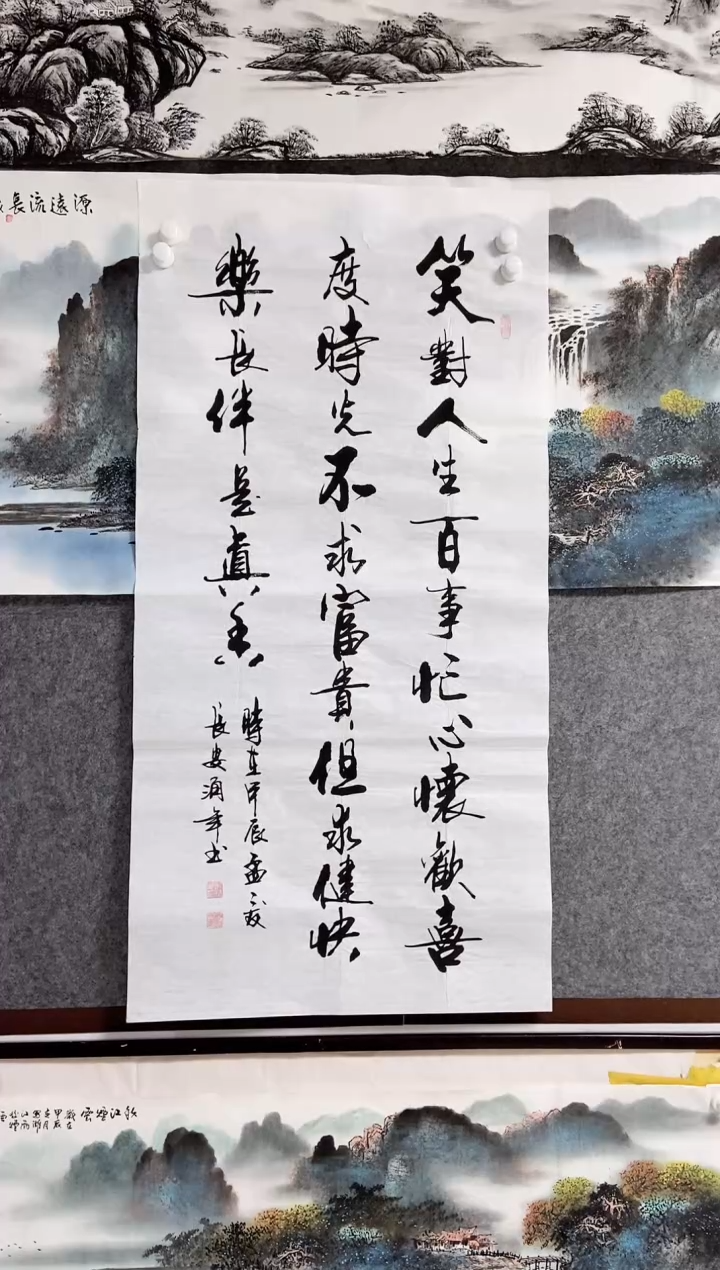 笑對人生百事忙心懷歡喜
度時光不求富貴但求健快
樂長伴是真香
時在甲辰孟夏
長安涌年书
源遠流長
秋江煙雲